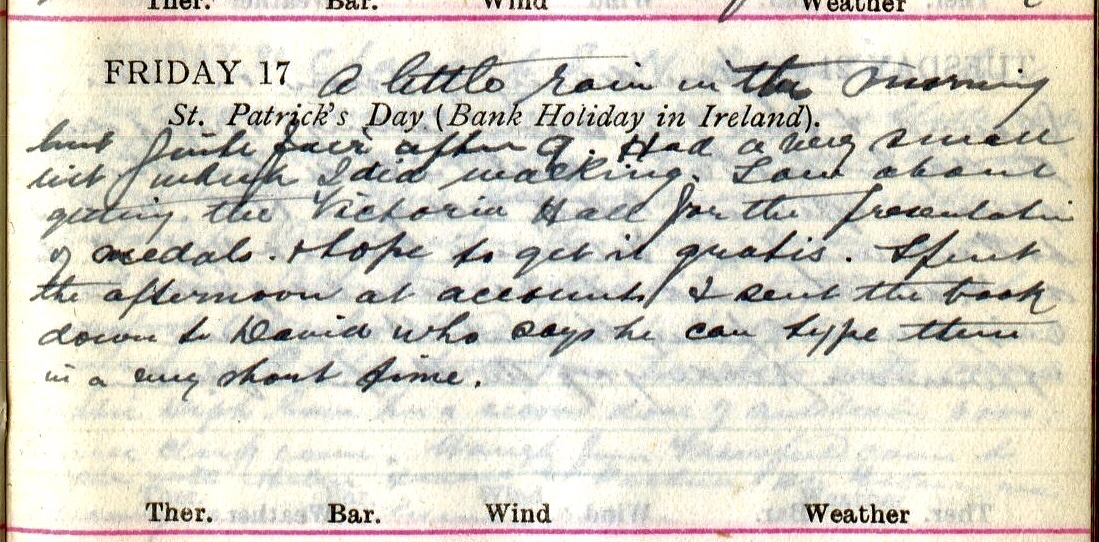 Ther. Bar. Wind Weather
FRIDAY 17 A little rain in the morning
St. Patrick's Day (Bank Holiday in Ireland).
but quite fair after 9. Had a very small
list which I did walking. Saw about
getting the Victoria Hall for the presentation
of medals. & hope to get it gratis. Spent
the afternoon at accounts & sent the book
down to David who says he can type them
in a very short time.
Ther. Bar. Wind Weather